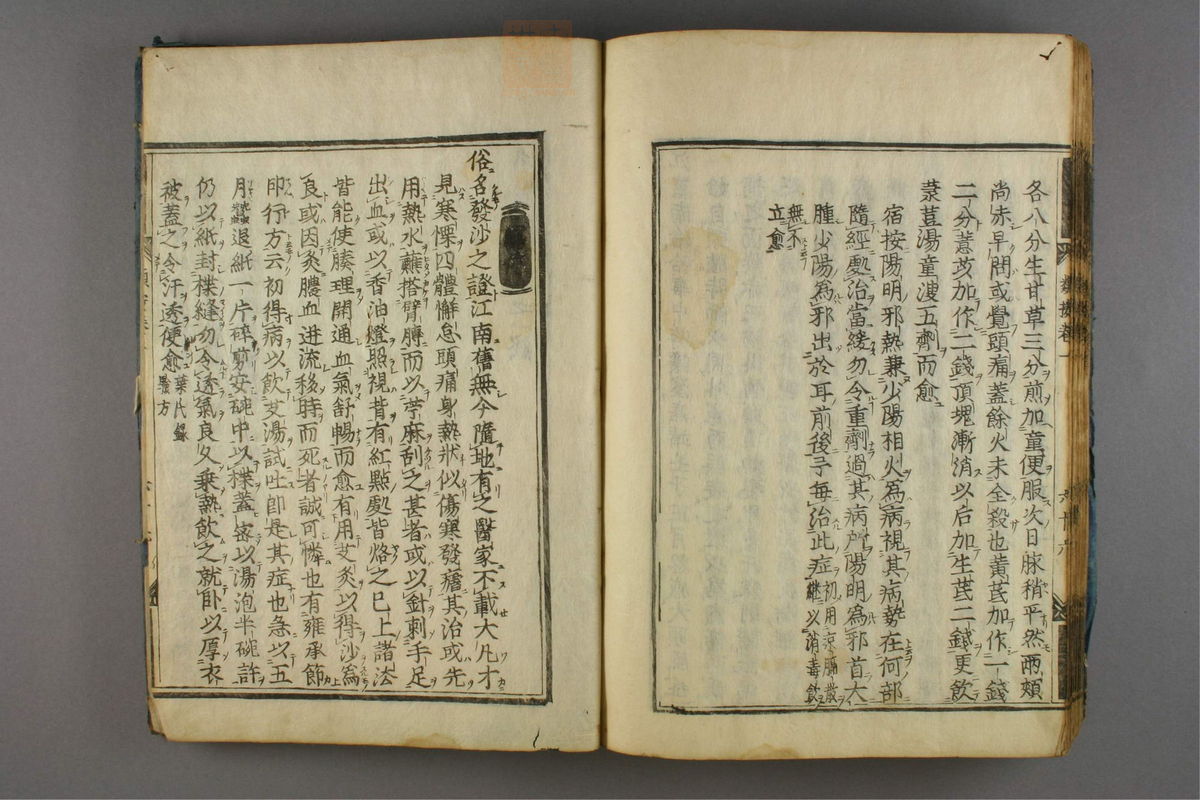 各八分生甘草三分煎加童便服次日脉稍平然両頰
尚赤早間或覺頭痛蓋餘火未全殺也黄芪加作一錢
二分薏苡加作二錢頂塊漸消以后加生芪二錢更飲
荳湯童溲五劑而愈
宿按陽明邪熱兼少陽相火為病視其病勢在何部
隨經處治當緩勿令重劑過其病所陽明為邪首大
腫少陽為邪出於耳前後予毎治此症初用凉膈散
継以消毒飲
無不
立愈
俗名發沙之證江南舊無今隨地有之醫家不載大凡才
見寒慄四體懈怠頭痛身熱狀似傷寒發瘧其治或先
用熱水蘸搭臂膊而以苧麻刮之甚者或以針刺手足
出血或以香油燈照視背有紅點處皆烙之已上諸法
皆能使腠理開通血氣舒暢而愈有用艾灸以得沙為
良或因灸膿血迸流移時而死者誠可憐也有雍承節
印行方云初得病以飲艾湯試吐即是其症也急以五
月蠶退紙一片碎剪安碗中以楪蓋密以湯泡半碗許
仍以紙封楪縫勿令透氣良久乗熱飲之就卧以厚衣
被蓋之令汗透便愈葉氏錄
驗方